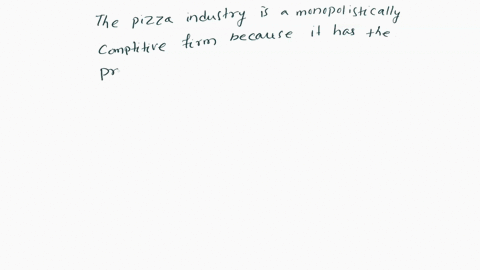 The pizza industry is a monopolistically
Comptitive firm because it has the
pr